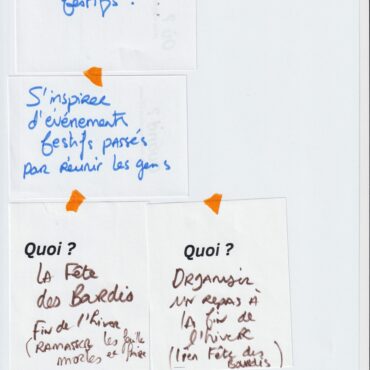 festifs ?
S'inspirer
d'événements
festifs passés
par réunir les gens
Quoi ?
LA Fête
des Bourdis
Fin de l'hiver
(RAMASSER les feuilles
mortes et
Quoi ?
ORGANISER
UN REPAS À
LA fin de
l'hiver
(1ère Fête des
Bourdis)